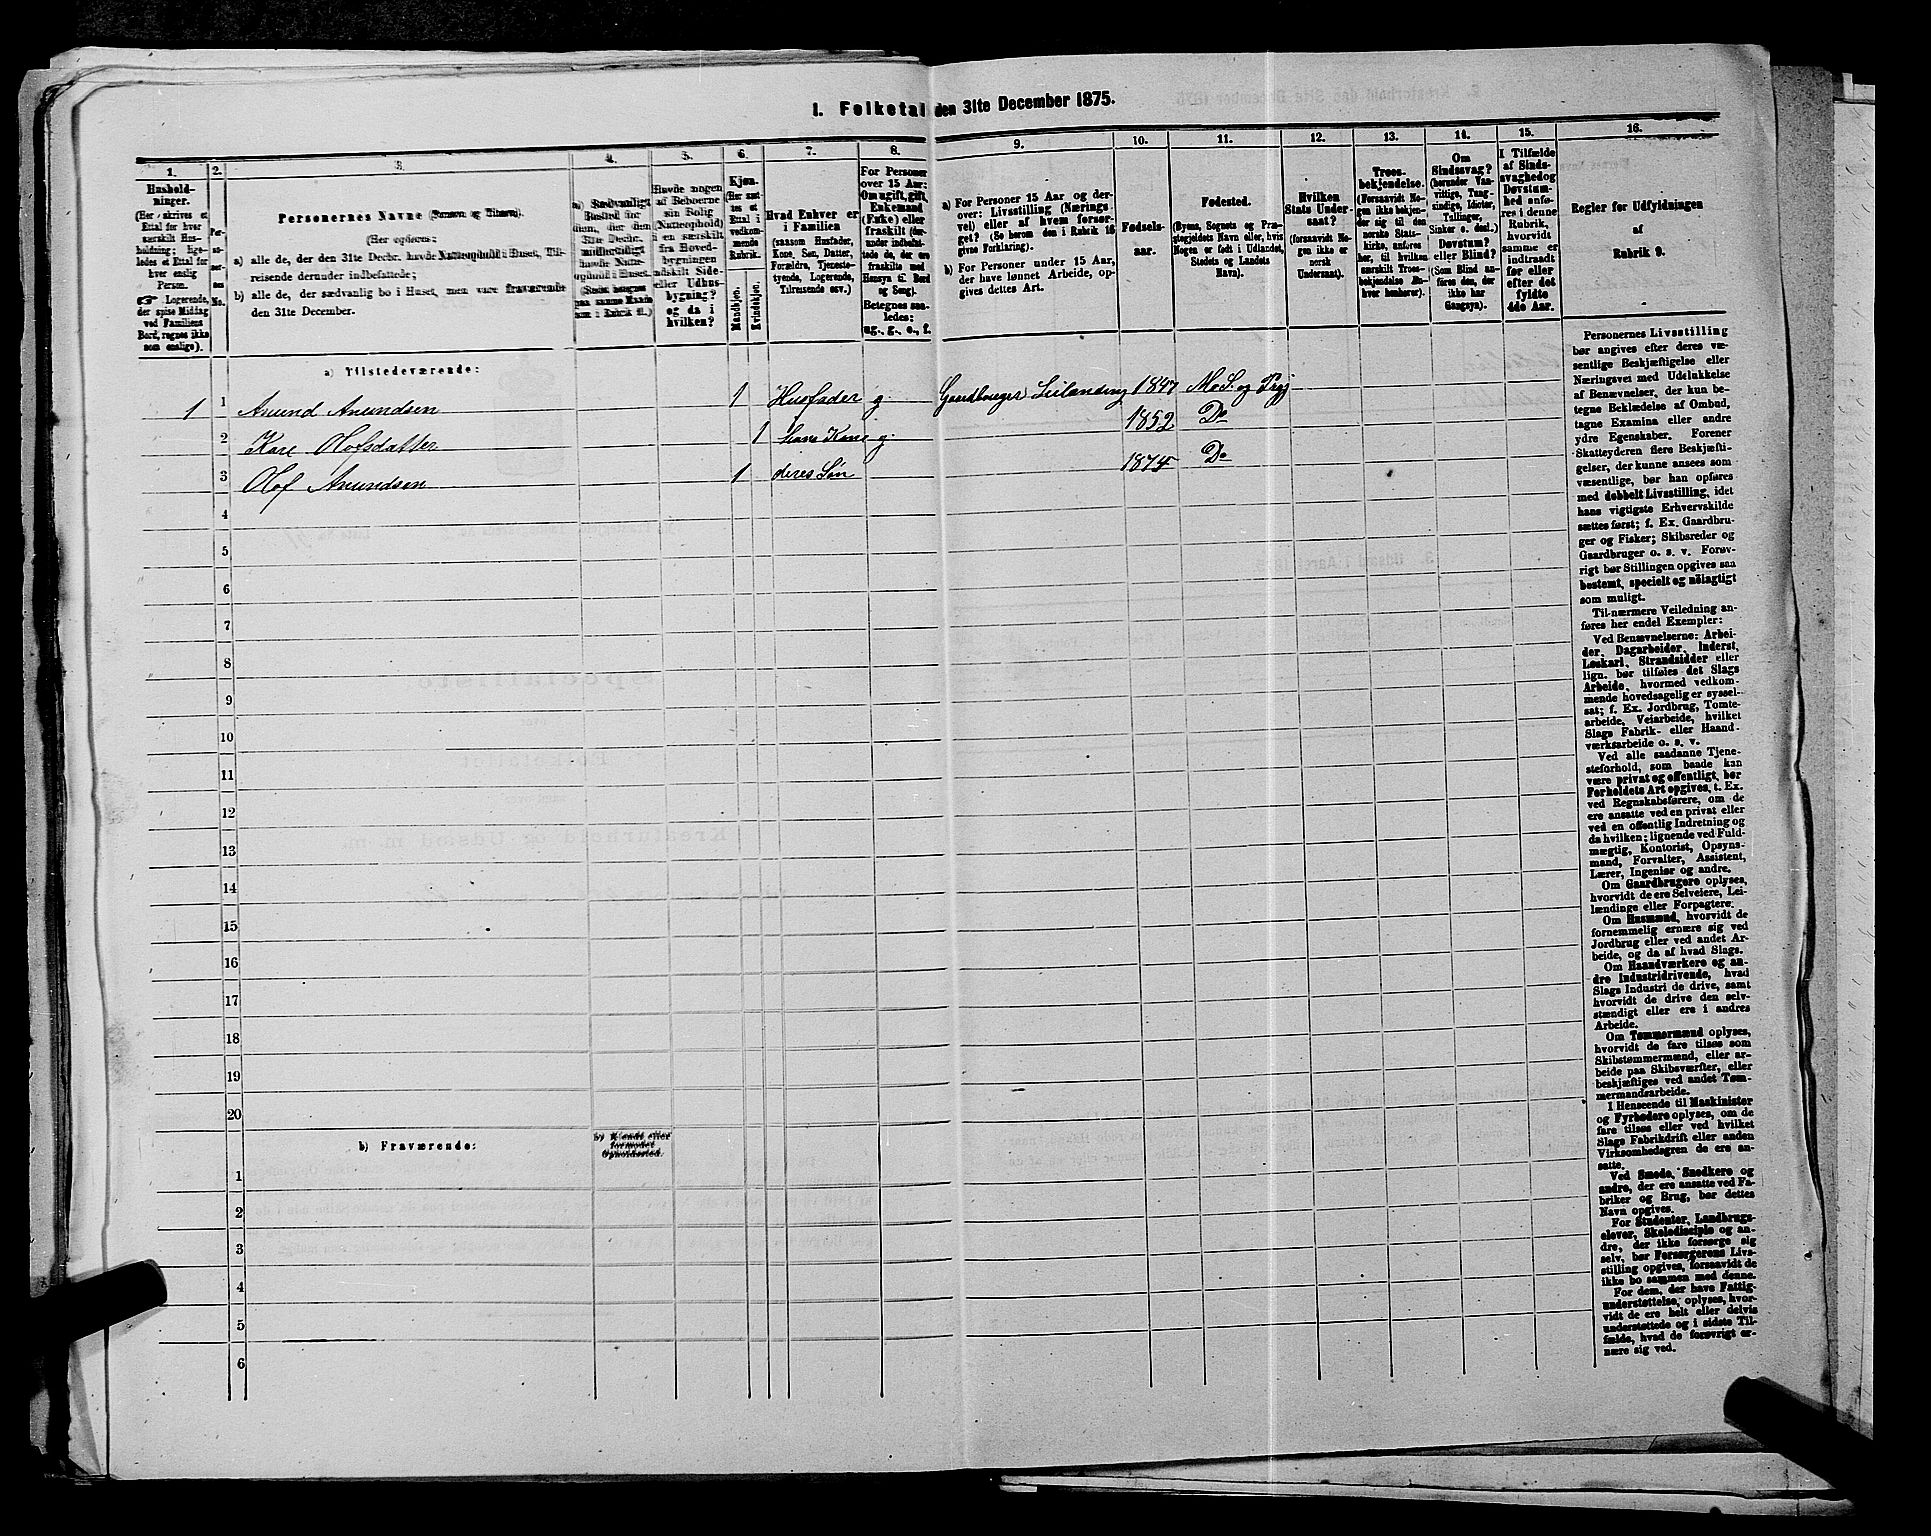 I. Folketal den 31te December 1875.
1. 2. 3. 4. 5. 6. 7. 8. 9. 10. 11. 12. 13. 14. 15. 16.
Husholdninger.
(Her skrives et
Ettal for hver
særskilt Husholdning;
ligeledes
et Ettal for
hver enslig
Person.
☞ Logerende,
der spise Middag
ved Familiens
Bord, regnes ikke
som enslige).
Personernes No.
Personernes Navne (Fornavn og Tilnavn).
(Her opføres:
a) alle de, der den 31te Decbr. havde Natteophold i Huset, Tilreisende
derunder indbefattede;
b) alle de, der sædvanlig bo i Huset, men vare fraværende
den 31te December.
a) Sædvanligt
Bosted for
dem, der den
31te Decbr.
midlertidigt
ophold i Huset.
Havde nogen
af Beboerne
sin Bolig
(Natteophold)
i en særskilt
fra Hovedbygningen
adskilt Side-
eller Udhusbygning?
og da i
hvilken?
Kjøn.
(Her sættes
et
Ettal i
vedkommende
Rubrik.
Mandkjøn.
Kvindekjøn.
Hvad Enhver er
i Familien
(saasom Husfader,
Kone, Søn, Datter,
Forældre, Tjenestetyende,
Logerende,
Tilreisende osv.)
For Personer
over 15 Aar:
Om ugift, gift,
Enkemand
(Enke) eller
fraskilt
Betegnes saaledes:
ug., g., e., f.
a) For Personer 15 Aar og derover:
Livsstilling (Næringsvei)
eller af hvem forsørget?
(Se herom den i Rubrik 16
givne Forklaring).
b) For Personer under 15 Aar,
der have lønnet Arbeide, opgives
dettes Art.
Fødselsaar.
Fødested.
(Byens, Sognets og Præstegjeldets
Navn eller, hvis
Nogen er født i Udlandet,
Stedets og Landets
Navn).
Hvilken
Stats Undersaat?
(forsaavidt Nogen
ikke er
norsk
Undersaat).
Troesbekjendelse.
(Forsaavidt Nogen
ikke bekjender
sig til den
norske Statskirke,
anføres
her, til hvilken
særskilt Troesbekjendelse
Enhver
henhører).
Om
Sindssvag?
(herunder Vanvittige,
Tungsindige,
Idioter,
Tullinger,
Sinker o. desl.)
Døvstum?
eller Blind?
(Som Blind anføres
den, der
ikke har
Gangsyn).
I Tilfælde
af Sindssvaghed og
Døvstumhed
anføres
i denne
Rubrik,
hvorvidt
samme er
indtraadt
før eller
efter det
fyldte
4de Aar.
Regler for Udfyldningen
af
Rubrik 9.
a) Tilstedeværende:
1 1 Anund Anundsen 1 Husfader g. Gaardbruger Leilending 1847 Mo S. og Prgj
2 Kare Olofsdatter 1 hans Kone g. 1852 Do
3 Olof Anundsen 1 deres Søn 1874 Do
4
5
6
7
8
9
10
11
12
13
14
15
16
17
18
19
20
b) Fraværende:
b) Kjendt eller
formodet
Opholdssted.
1
2
3
4
5
6
Personernes Livsstilling
bør angives efter deres væsentlige
Beskjæftigelse eller
Næringsvei med Udelukkelse
af Benævnelser, der kun betegne
Beklædelse af Ombud,
tagne Examina eller andre
ydre Egenskaber. Forener
Skatteyderen flere Beskjæftigelser,
der kunne ansees som
væsentlige, bør han opføres
med dobbelt Livsstilling, idet
hans vigtigste Erhvervskilde
sættes først; f. Ex. Gaardbruger
og Fisker; Skibsreder og
Gaardbruger o. s. v. Forøvrigt
bør Stillingen opgives saa
bestemt, specielt og nøiagtigt
som muligt.
Til nærmere Veiledning anføres
her endel Exempler:
Ved Benævnelserne: Arbeider,
Dagarbeider, Inderst,
Løskarl, Strandsidder eller
lign. bør tilføies det Slags
Arbeide, hvormed vedkommende
hovedsagelig er sysselsat;
f. Ex. Jordbrug, Tomtearbeide,
Veiarbeide, hvilket
Slags Fabrik- eller Haandværksarbeide
o. s. v.
Ved alle saadanne Tjenesteforhold,
som baade kan
være privat og offentligt, bør
Forholdets Art opgives, t. Ex.
ved Regnskabsførere, om de
ere ansatte ved en privat eller
ved en offentlig Indretning og
da hvilken; lignende ved Fuldmægtig,
Kontorist, Opsynsmand,
Forvalter, Assistent,
Lærer, Ingeniør og andre.
Om Gaardbrugere oplyses,
hvorvidt de ere Selveiere, Leilændinge
eller Forpagtere.
Om Husmænd, hvorvidt de
fornemmelig ernære sig ved
Jordbrug eller ved andet Arbeide,
og da af hvad Slags.
Om Haandværkere og andre
Industridrivende, hvad
Slags Industri de drive, samt
hvorvidt de drive den selvstændigt
eller ere i andres
Arbeide.
Om Tømmermænd oplyses,
hvorvidt de fare tilsøs som
Skibstømmermænd, eller arbeide
paa Skibsværfter, eller
beskjæftiges ved andet Tømmermandsarbeide.
I Henseende til Maskinister
og Fyrbødere oplyses, om de
fare tilsøs eller ved hvilket
Slags Fabrikdrift eller anden
Virksomhedsgren de ere ansatte.
Ved Smede, Snedkere og
andre, der ere ansatte ved Fabriker
og Brug, bør dettes
Navn opgives.
For Studenter, Landbrugselever,
Skoledisciple og andre,
der ikke forsørge sig
selv, bør Forsørgerens Livsstilling
opgives, forsaavidt de
ikke bo sammen med denne.
For dem, der have Fattigunderstøttelse,
oplyses, hvorvidt
de ere helt eller delvis
understøttede og i sidste Tilfælde,
hvad de forøvrigt ernære
sig ved.